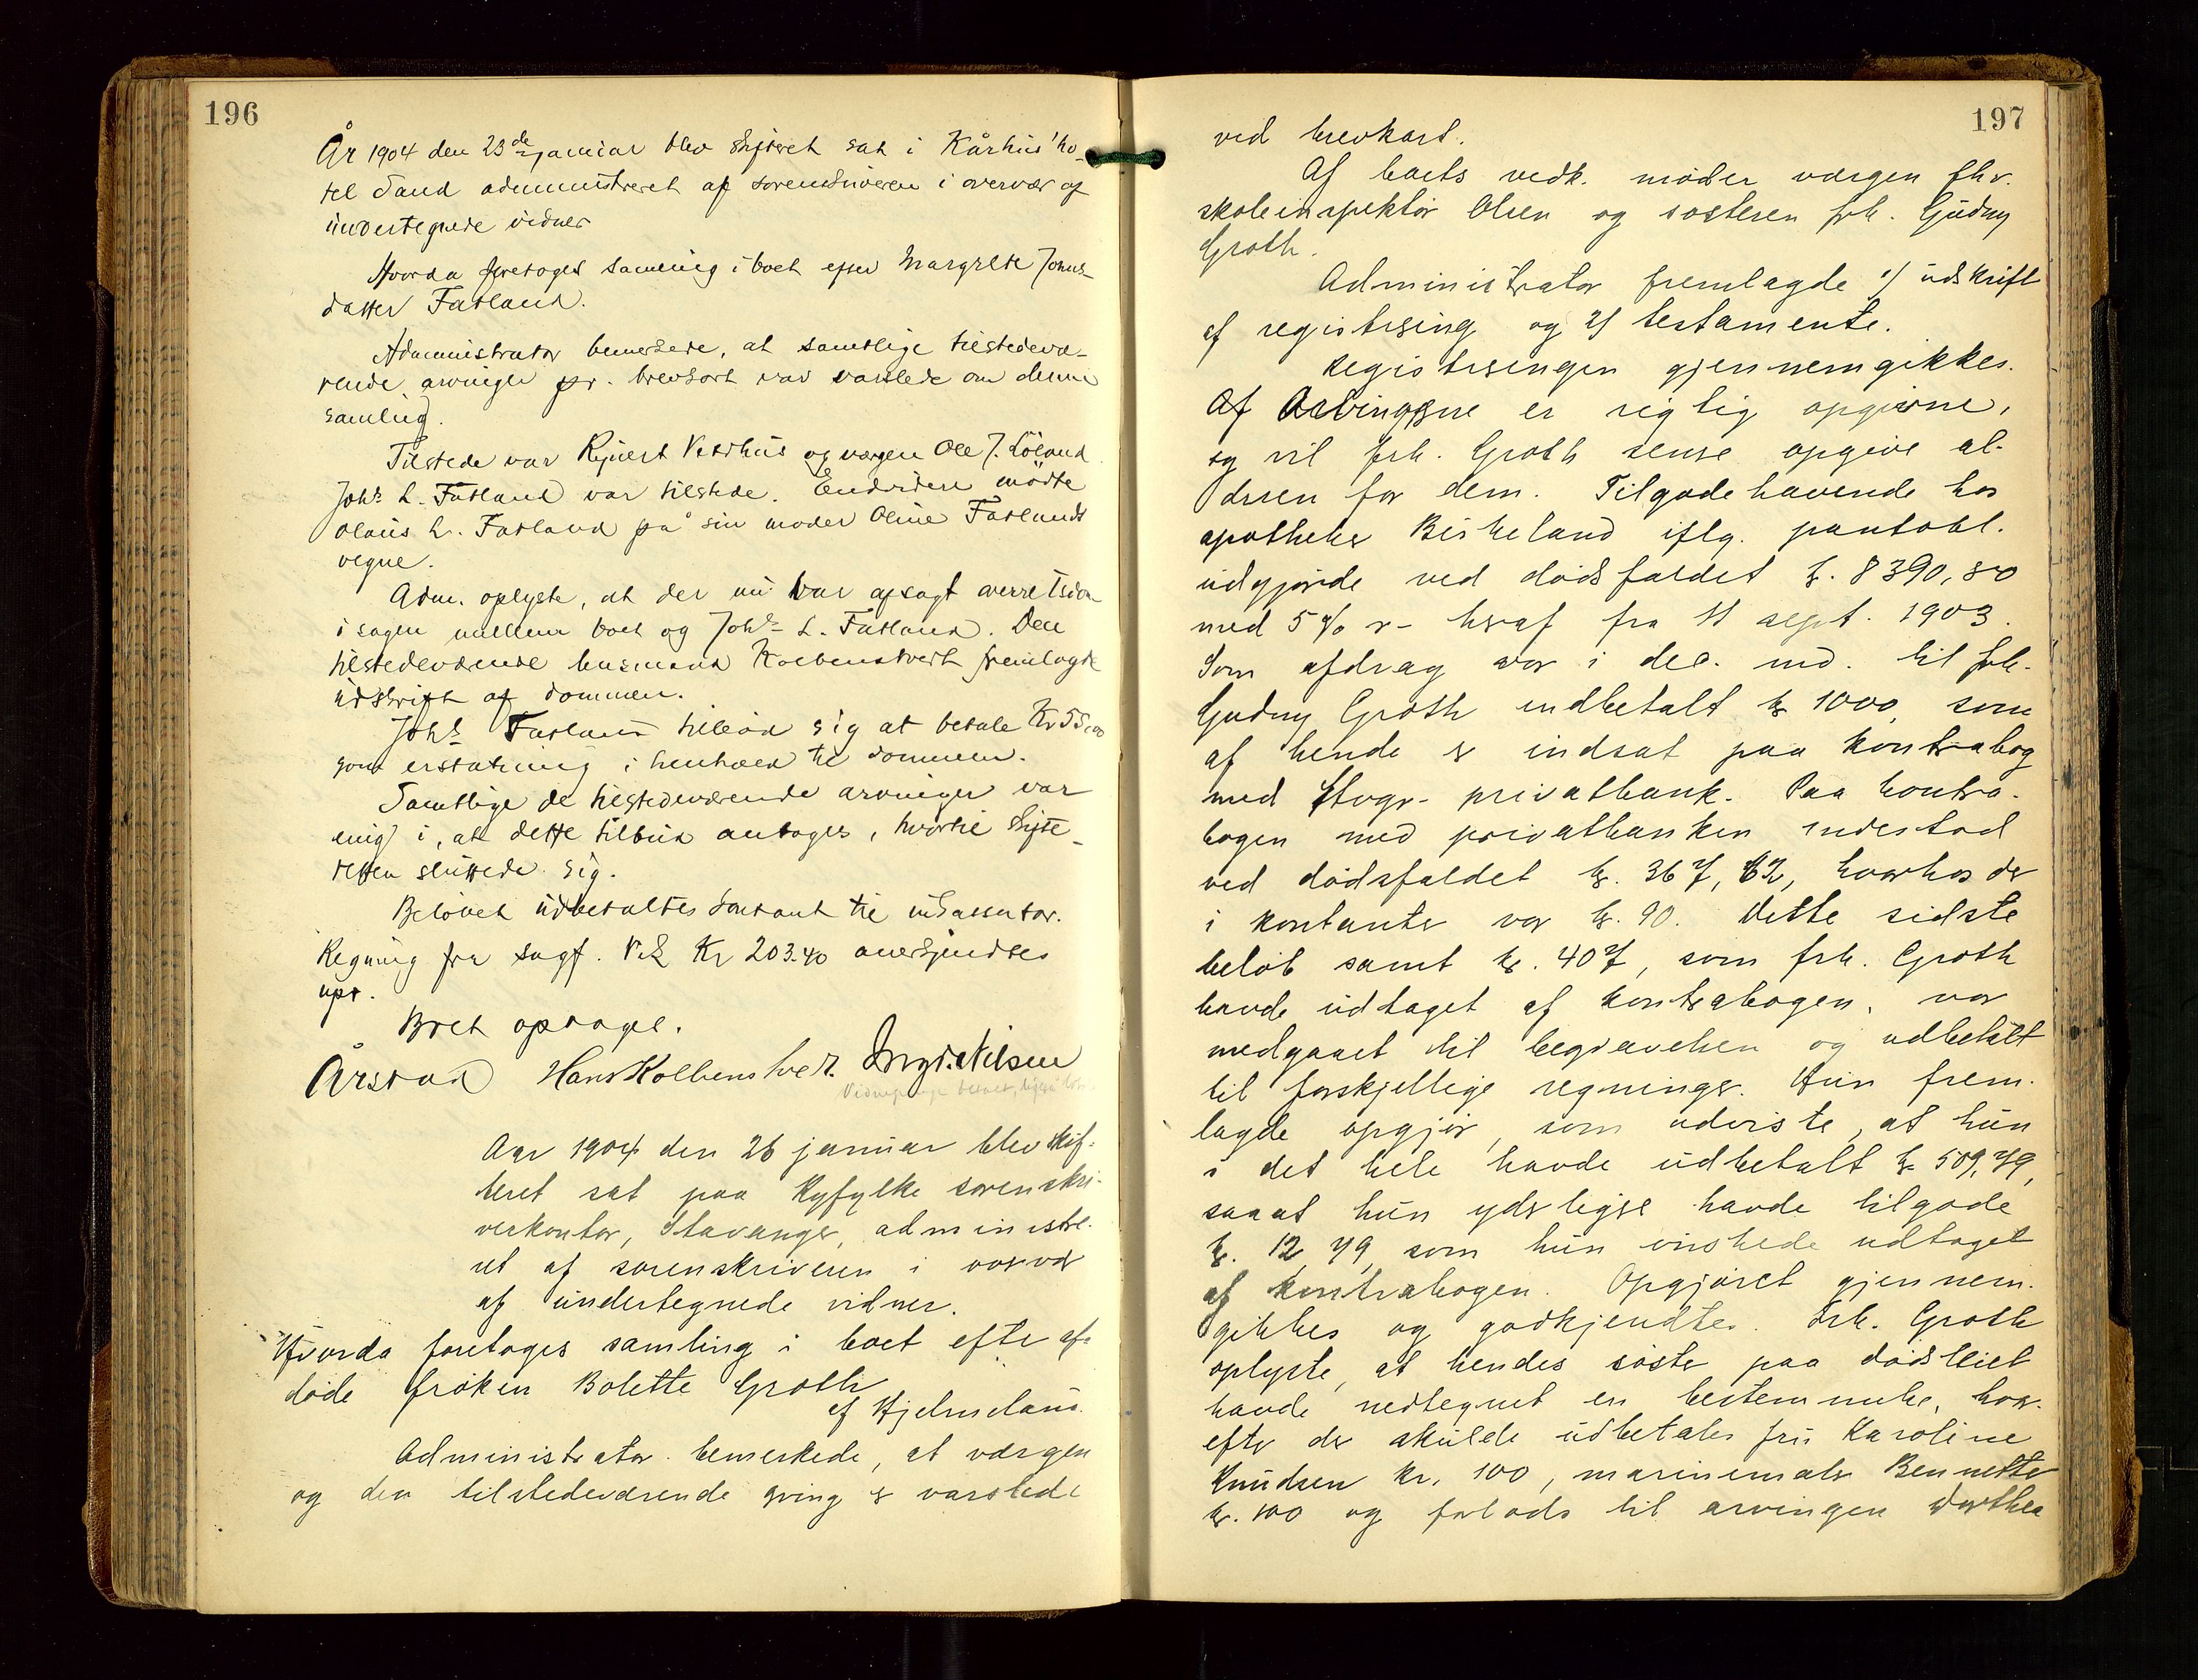 196
År 1904 den 23de januar blev skifteret sat i Kårhus' ho-
tel Sand administreret af sorenskriveren i overvær af
undertegnede vidner
Hvorda foretoges samling i boet efter Margrete Johns-
datter Fatland.
Administrator bemerkede, at samtlige tilstedevæ-
rende arvinger pr. brevkort var varslede om denne
samling.
Tilstede var Vetrhus og værgen Ole J. Löland
Johs L. Fatland var tilstede. Endvidere mödte
Olaus L. Fatland på sin moder Oline Fatlands
vegne.
Adm. oplyste, at der nu var afsagt overretsdom
i sagen mellem boet og Johs L. Fatland. Den
tilstedeværende husmand Kolbenstvedt fremlagde
udskrift af dommen.
Johs Fatland tilböd sig at betale Kr 55,00
som erstatning i henhold til dommen.
Samtlige de tilstedeværende arvinger var
enig i, at dette tilbud antoges, hvortil skifte-
retten sluttede sig.
Belöbet udbetaltes kontant til inkassator.
Regning fra sagf. Kr 203.40 anerkjendtes
Boet optages.
Årstad Hans Kolbenstvedt. Nilsen
Aar 1904 den 26 januar blev skif-
teret sat paa Ryfylke sorenskri-
verkontor, Stavanger, administre-
ret af sorenskriveren i overvær
af undertegnede vidner.
Hvorda foretoges samling i boet efter af-
døde frøken Bolette Groth
af Hjelmeland.
Administrator bemerkede, at værgen
og den tilstedeværende arving er varslede
197
ved brevkort.
Af boets vedk. møder værgen fhv.
skoleinspektør Olsen og søsteren frk. Gudny
Groth.
Administrator fremlagde 1/ udskrift
af registrering og 2/ testamente.
Registreringen gjennemgikkes.
Af Arvingerne er rigtig opgivne,
og vil frk. Groth senere opgive al-
deren for dem. Tilgodehavende hos
apotheker Birkeland iflg. pantobl.
udgjorde ved dødsfaldet kr. 8390,80
med 5 % r- heraf fra 11 sept. 1903.
Som afdrag var i dec. md. til frk.
Gudny Groth indbetalt kr 1000, som
af hende er indsat paa kontrabog
med Stvgr- privatbank. Paa kontra-
bogen med privatbanken indestod
ved dødsfaldet kr. 367,62, hvorhos der
i kontanter var kr. 90. Dette sidste
beløb samt kr. 407, som frk. Groth
havde udtaget af kontrabogen, var
medgaaet til begravelsen og udbetalt
til forskjellige regninger. Hun frem-
lagde opgjør, som udviste, at hun
i det hele havde udbetalt kr 509,79,
saaat hun yderligere havde tilgode
kr. 12,79, som hun ønskede udtaget
af kontrabogen. Opgjøret gjennem-
gikkes og godkjendtes. Frk. Groth
oplyste, at hendes søster paa dødsleiet
havde nedtegnet en bestemmelse, hvor-
efter der skulde udbetales fru Karoline
Knudsen kr. 100, marinemaler Bennetter
kr. 100 og forlods til arvingen Dorthea